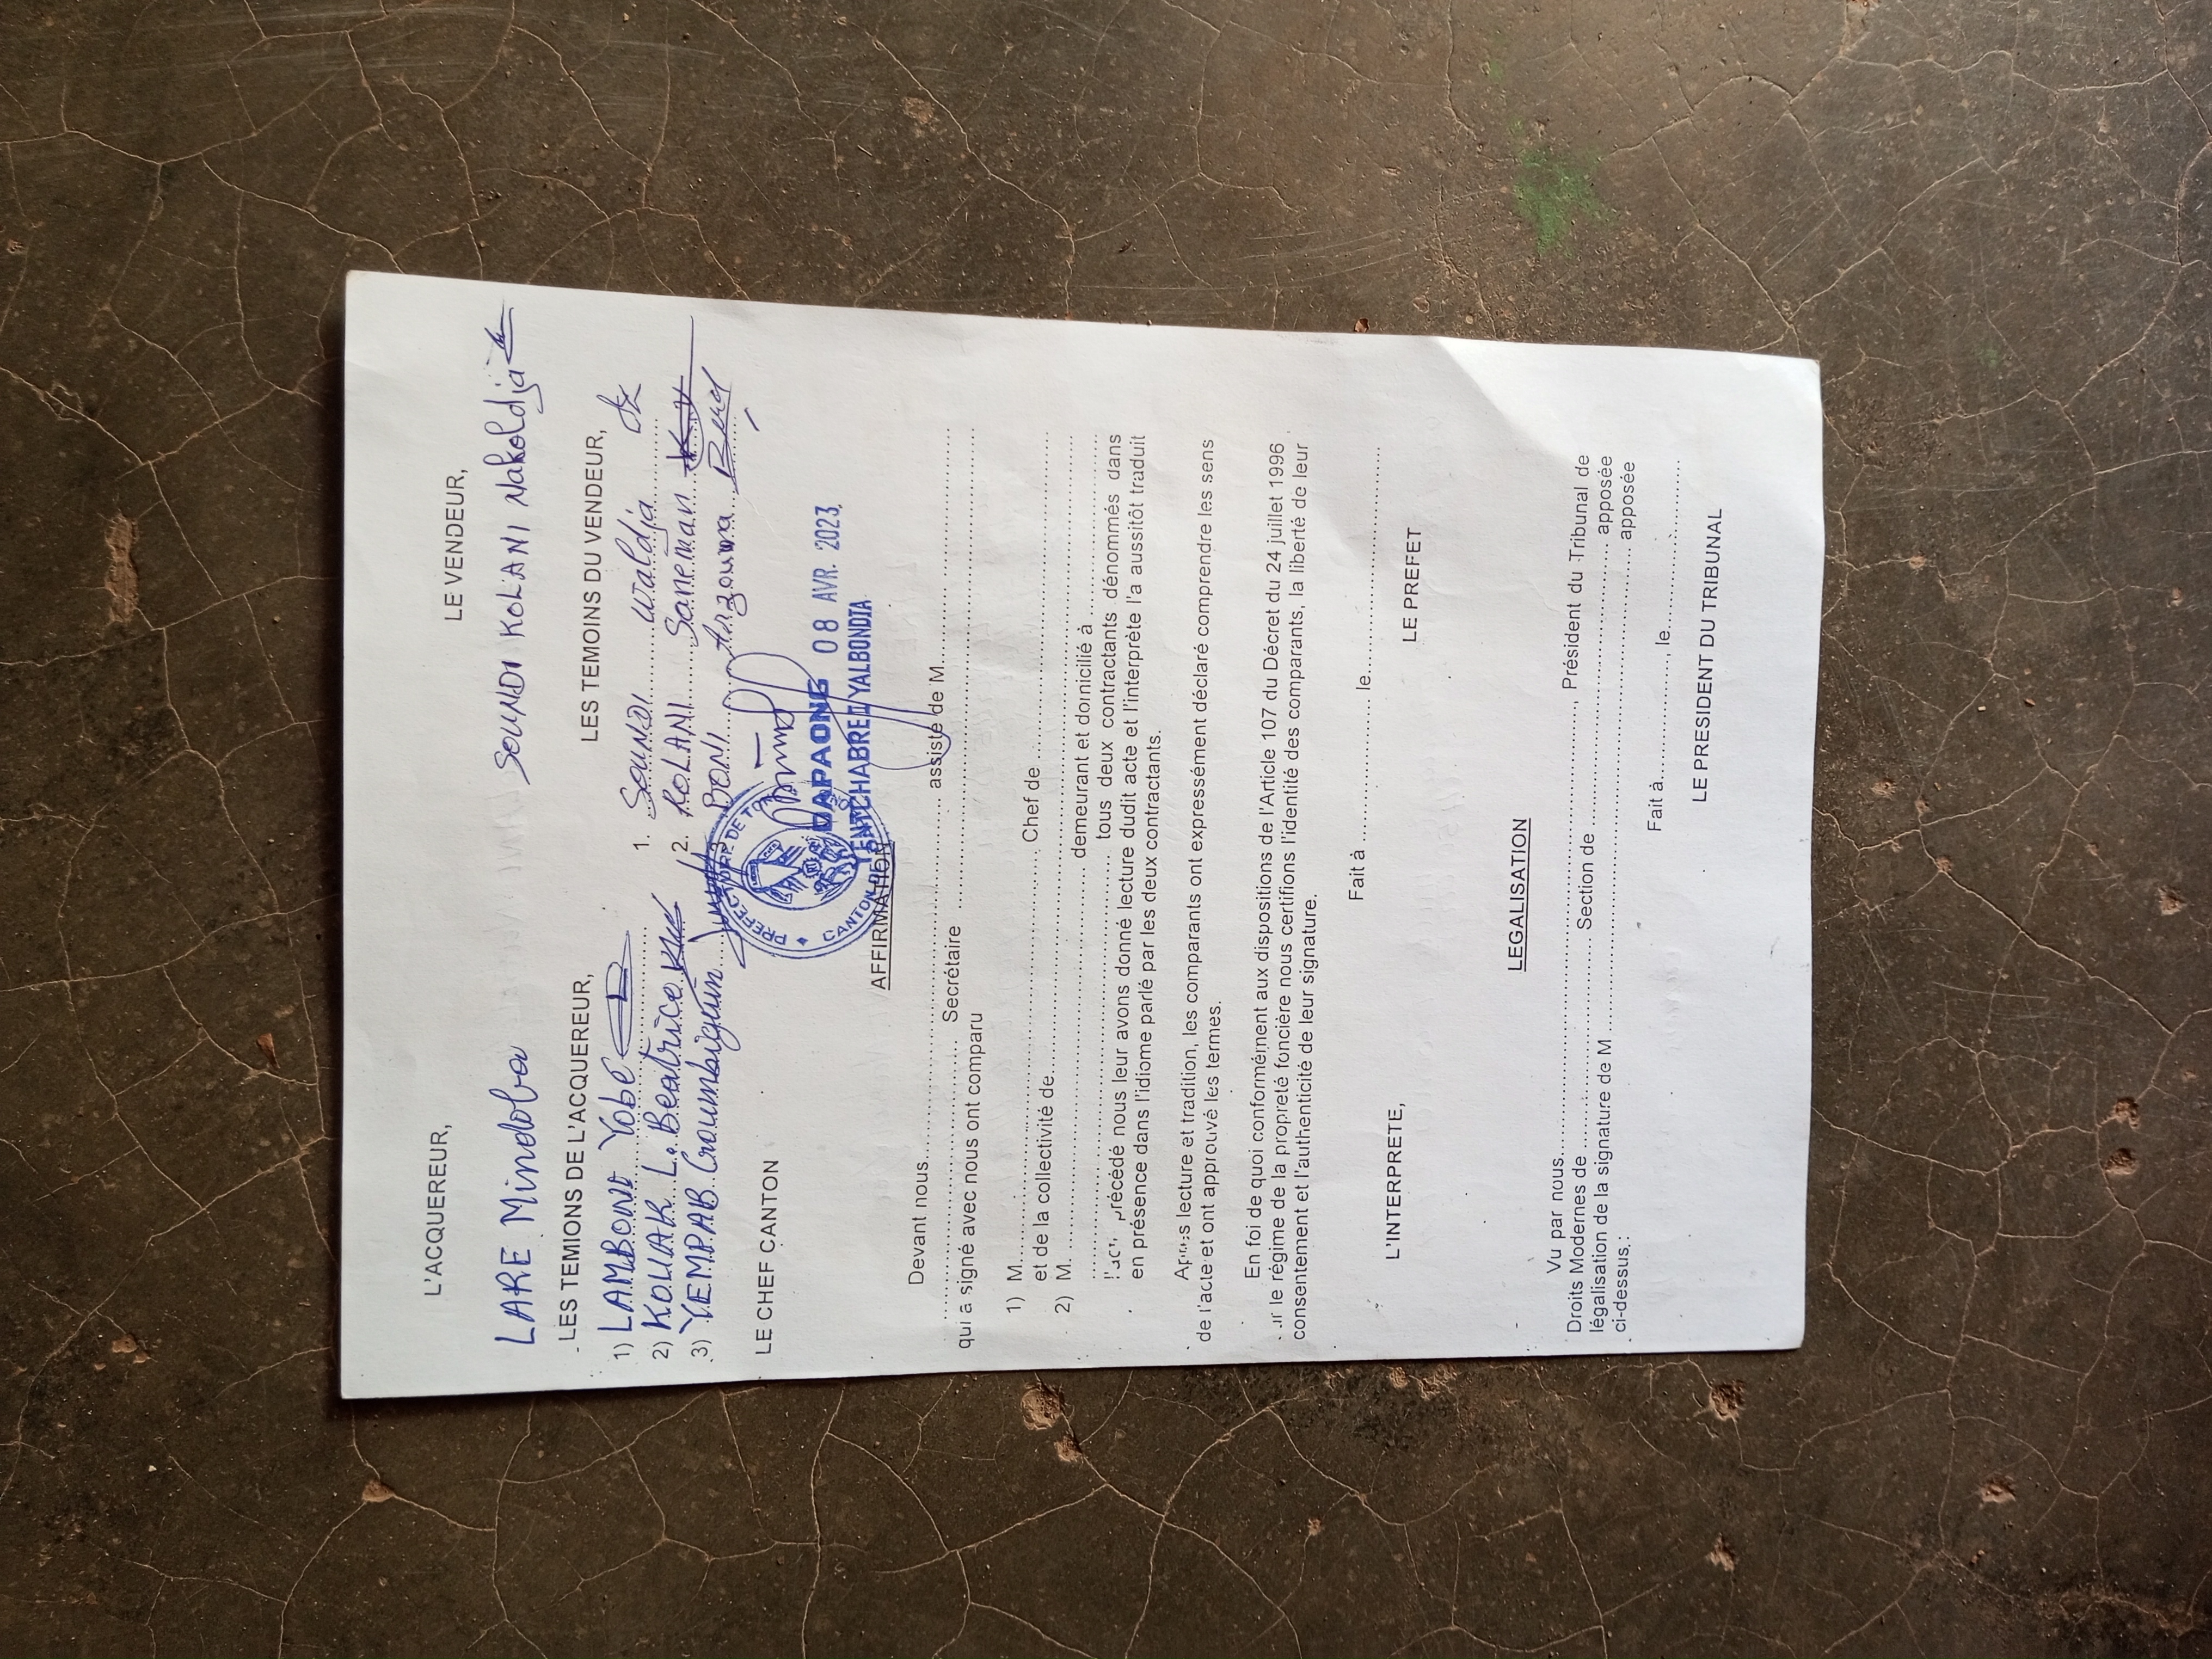 L'ACQUEREUR,
LE VENDEUR,
LARE Mindoba
SOUNDI KOLANI Nakoldja
LES TEMIONS DE L'ACQUEREUR,
LES TEMOINS DU VENDEUR,
1) LAMBONI Yobé
2) KOLIAK L. Beatrice
3) YEMPAB
1. SOUNDI waldja
2. KOLANI Saneman
BONI Arzouma
LE CHEF CANTON
DAPAONG 08 AVR. 2023
PREFECTURE DE
CANTON DE
YENTCHABRE/YALBONDIA
AFFIRMATION
Devant nous.......... assisté de M..........
.......... Secrétaire ..........
qui a signé avec nous ont comparu
1) M.......... Chef de ..........
et de la collectivité de..........
2) M. .......... demeurant et domicilié à ..........
.......... tous deux contractants dénommés dans
précédé nous leur avons donné lecture dudit acte et l'interprète l'a aussitôt traduit
en présence dans l'idiome parlé par les deux contractants.
lecture et tradition, les comparants ont expressément déclaré comprendre les sens
de l'acte et ont approuvé les termes.
En foi de quoi conformément aux dispositions de l'Article 107 du Décret du 24 juillet 1996
le régime de la propreté foncière nous certifions l'identité des comparants, la liberté de leur
consentement et l'authenticité de leur signature.
Fait à .......... le..........
L'INTERPRETE,
LE PREFET
LEGALISATION
Vu par nous.........., Président du Tribunal de
Droits Modernes de .......... Section de .......... apposée
légalisation de la signature de M .......... apposée
ci-dessus,:
Fait à.........., le..........
LE PRESIDENT DU TRIBUNAL